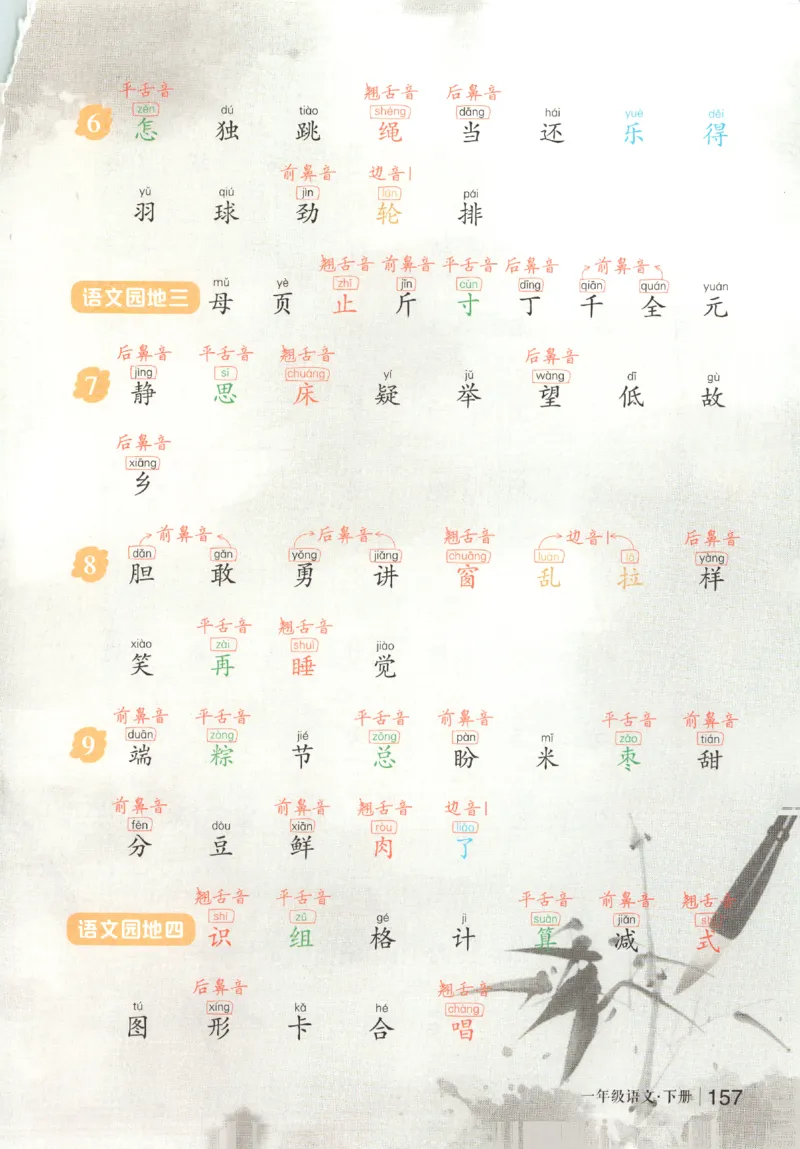 平舌音 翘舌音 后鼻音
zěn dú tiào shéng dāng hái yuè děi
6 怎 独 跳 绳 当 还 乐 得
前鼻音 边音l
yǔ qiú jìn lún pái
羽 球 劲 轮 排
翘舌音 前鼻音 平舌音 后鼻音 前鼻音
mǔ yè zhǐ jīn cùn dīng qiān quán yuán
语文园地三 母 页 止 斤 寸 丁 千 全 元
后鼻音 平舌音 翘舌音 后鼻音
jìng sī chuáng yí jǔ wàng dī gù
7 静 思 床 疑 举 望 低 故
后鼻音
xiāng
乡
前鼻音 后鼻音 翘舌音 边音l 后鼻音
dǎn gǎn yǒng jiǎng chuāng luàn lā yàng
8 胆 敢 勇 讲 窗 乱 拉 样
平舌音 翘舌音
xiào zài shuì jiào
笑 再 睡 觉
前鼻音 平舌音 平舌音 前鼻音 平舌音 前鼻音
duān zòng jié zǒng pàn mǐ zǎo tián
9 端 粽 节 总 盼 米 枣 甜
前鼻音 前鼻音 翘舌音 边音l
fēn dòu xiān ròu liǎo
分 豆 鲜 肉 了
翘舌音 平舌音 平舌音 前鼻音 翘舌音
shí zǔ gé jì suàn jiǎn shì
语文园地四 识 组 格 计 算 减 式
后鼻音 翘舌音
tú xíng kǎ hé chàng
图 形 卡 合 唱
一年级语文·下册 157